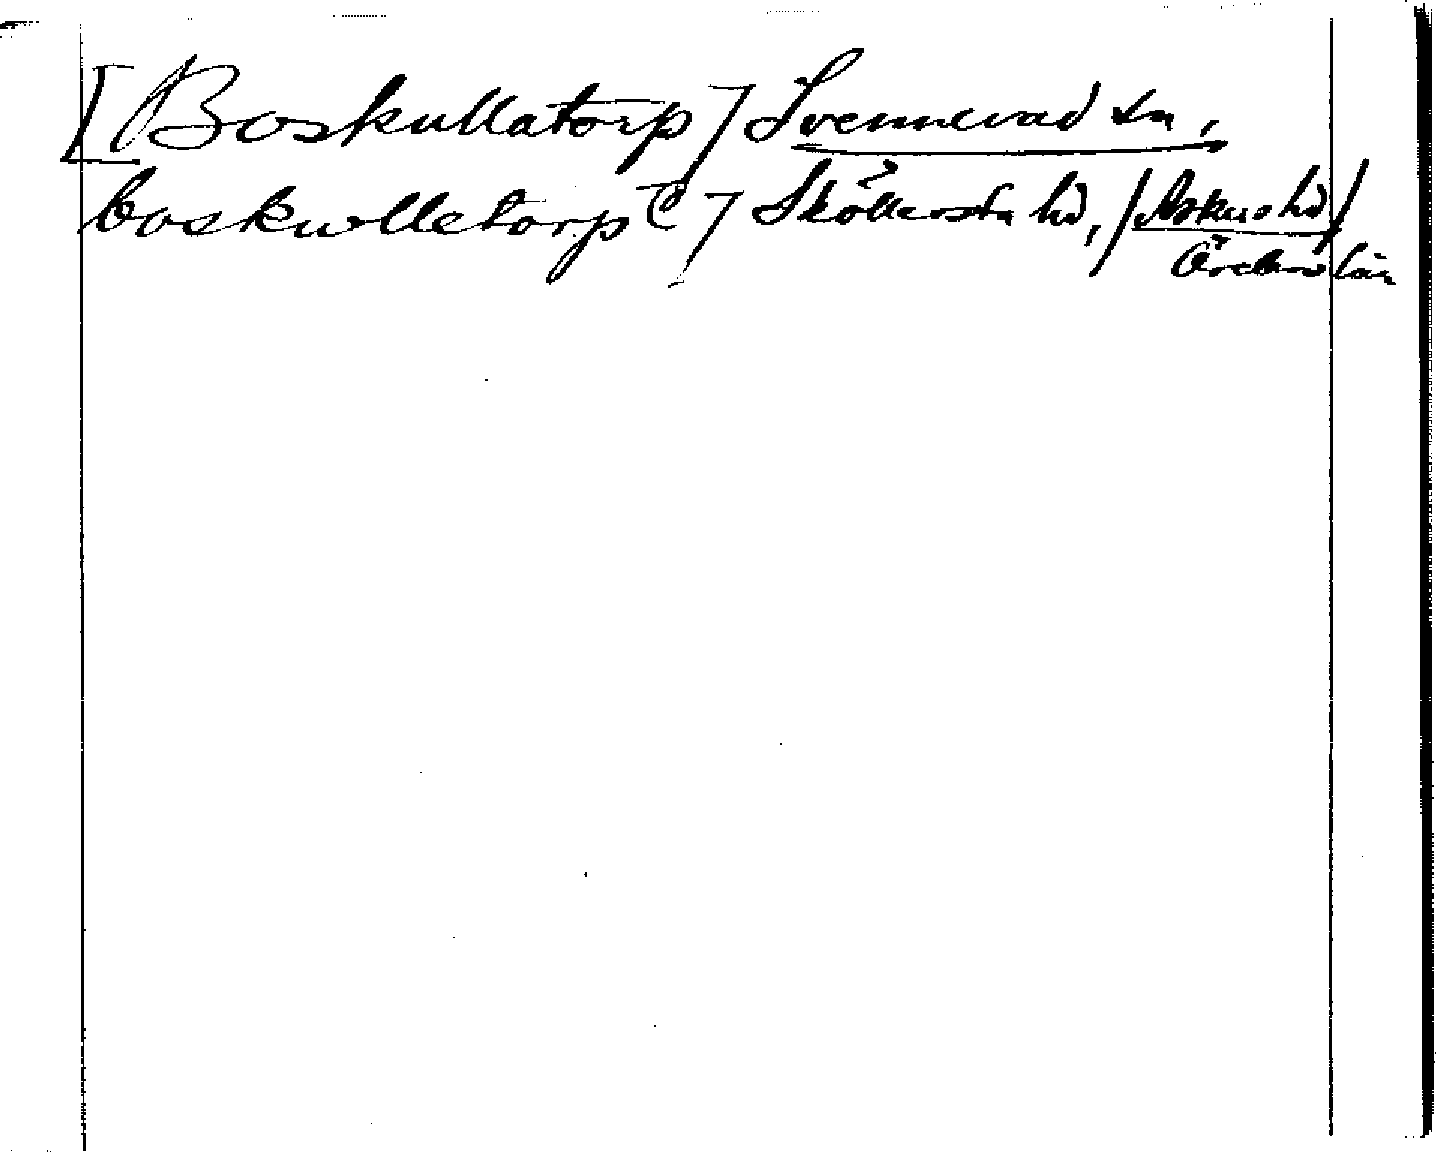 [Boskullatorp] Svennevad sn,
boskwlletorp C] Sköllersta hd, /Askers hd/
Örebro län